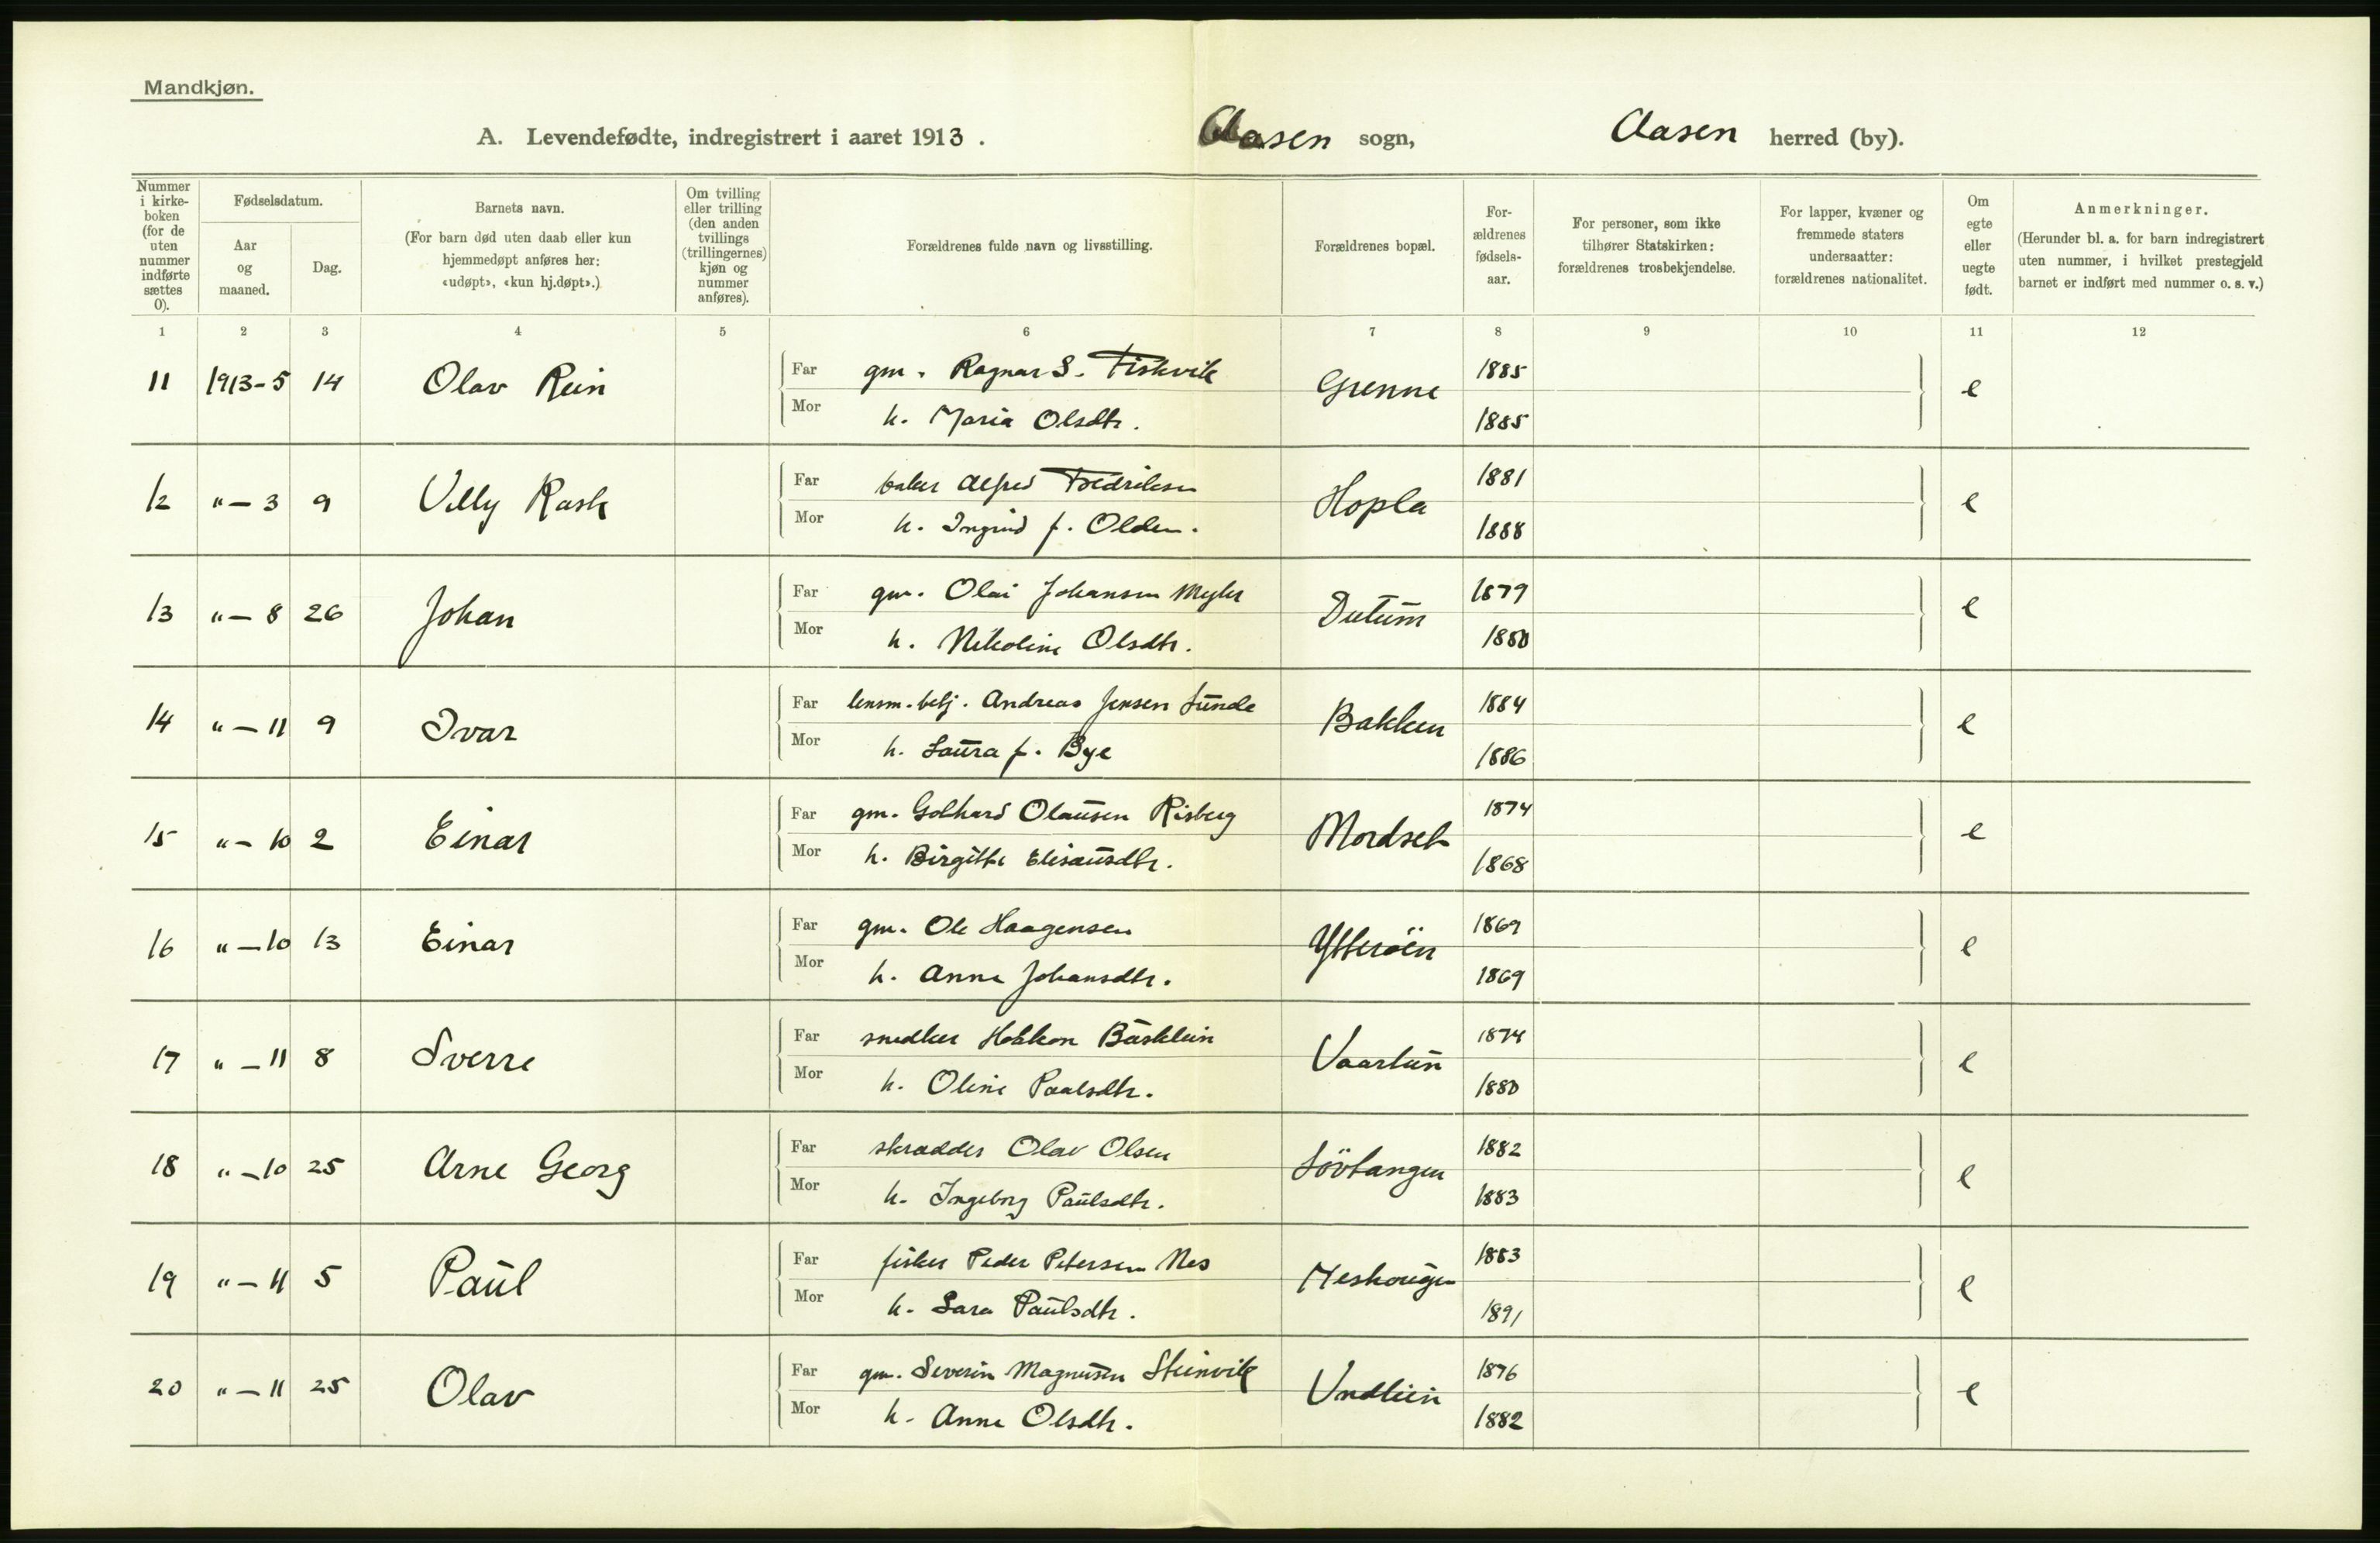 Mandkjøn.
A. Levendefødte, indregistrert i aaret 1913. Aasen sogn, Aasen herred (by).
Nummer i kirkeboken (for de uten nummer indførte sættes 0).
Fødselsdatum.
Aar og maaned.
Dag.
Barnets navn.
(For barn død uten daab eller kun hjemmedøpt anføres her: «udøpt», «kun hj.døpt».)
Om tvilling eller trilling (den anden tvillings (trillingernes) kjøn og nummer anføres).
Forældrenes fulde navn og livsstilling.
Forældrenes bopæl.
Forældrenes fødselsaar.
For personer, som ikke tilhører Statskirken: forældrenes trosbekjendelse.
For lapper, kvæner og fremmede staters undersaatter: forældrenes nationalitet.
Om egte eller uegte født.
Anmerkninger.
(Herunder bl. a. for barn indregistrert uten nummer, i hvilket prestegjeld barnet er indført med nummer o. s. v.)
1 2 3 4 5 6 7 8 9 10 11 12
11 1913-5 14 Olav Rein Far gm. Ragnar S. Fiskvik Grenne 1885 e
Mor h. Maria Olsdtr. 1885
12 "-3 9 Villy Rask Far baker Alfred Fredriksen Hopla 1881 e
Mor h. Ingrid f. Olden. 1888
13 "-8 26 Johan Far gm. Olai Johansen Myhr 1879 e
Mor h. Nikoline Olsdtr. 1880
14 "-11 9 Ivar Far lensm.betj. Andreas Jensen Sunde Bakken 1884 e
Mor h. Laura f. Bye 1886
15 "-10 2 Einar Far gm. Olausen Risberg Mordset 1874 e
Mor h. Birgitte Elisæusdtr. 1868
16 "-10 13 Einar Far gm. Ole Haagensen Ytteröen 1869 e
Mor h. Anna Johansdtr. 1869
17 "-11 8 Sverre Far snedker Haakon Busklein Vaartun 1874 e
Mor h. Oline Paalsdtr. 1880
18 "-10 25 Arne Georg Far skrædder Olav Olsen Lövtangen 1882 e
Mor h. Ingeborg Paulsdtr. 1883
19 "-11 5 Paul Far fisker Peder Petersen Nes Neshougen 1883 e
Mor h. Sara Paulsdtr. 1891
20 "-11 25 Olav Far gm. Severin Magnusen Steinvik Undlien 1876 e
Mor h. Anna Olsdtr. 1882